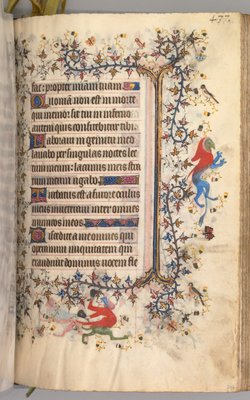 477
fac: propter miam tuam
Quoniā non est in morte
qui memor sit tui in inferno
autem quis confitebitur tibi
Laboraui in gemitu meo
lauabo per singulas noctes lec
tum meum: lacrimis meis stra
tum meum rigabo
Turbatus est a furore oculus
meus inueteraui inter omnes
inimicos meos
Discedite a me omnes qui
operamini iniquitatem qm̄
exaudiuit dominus vocem fle